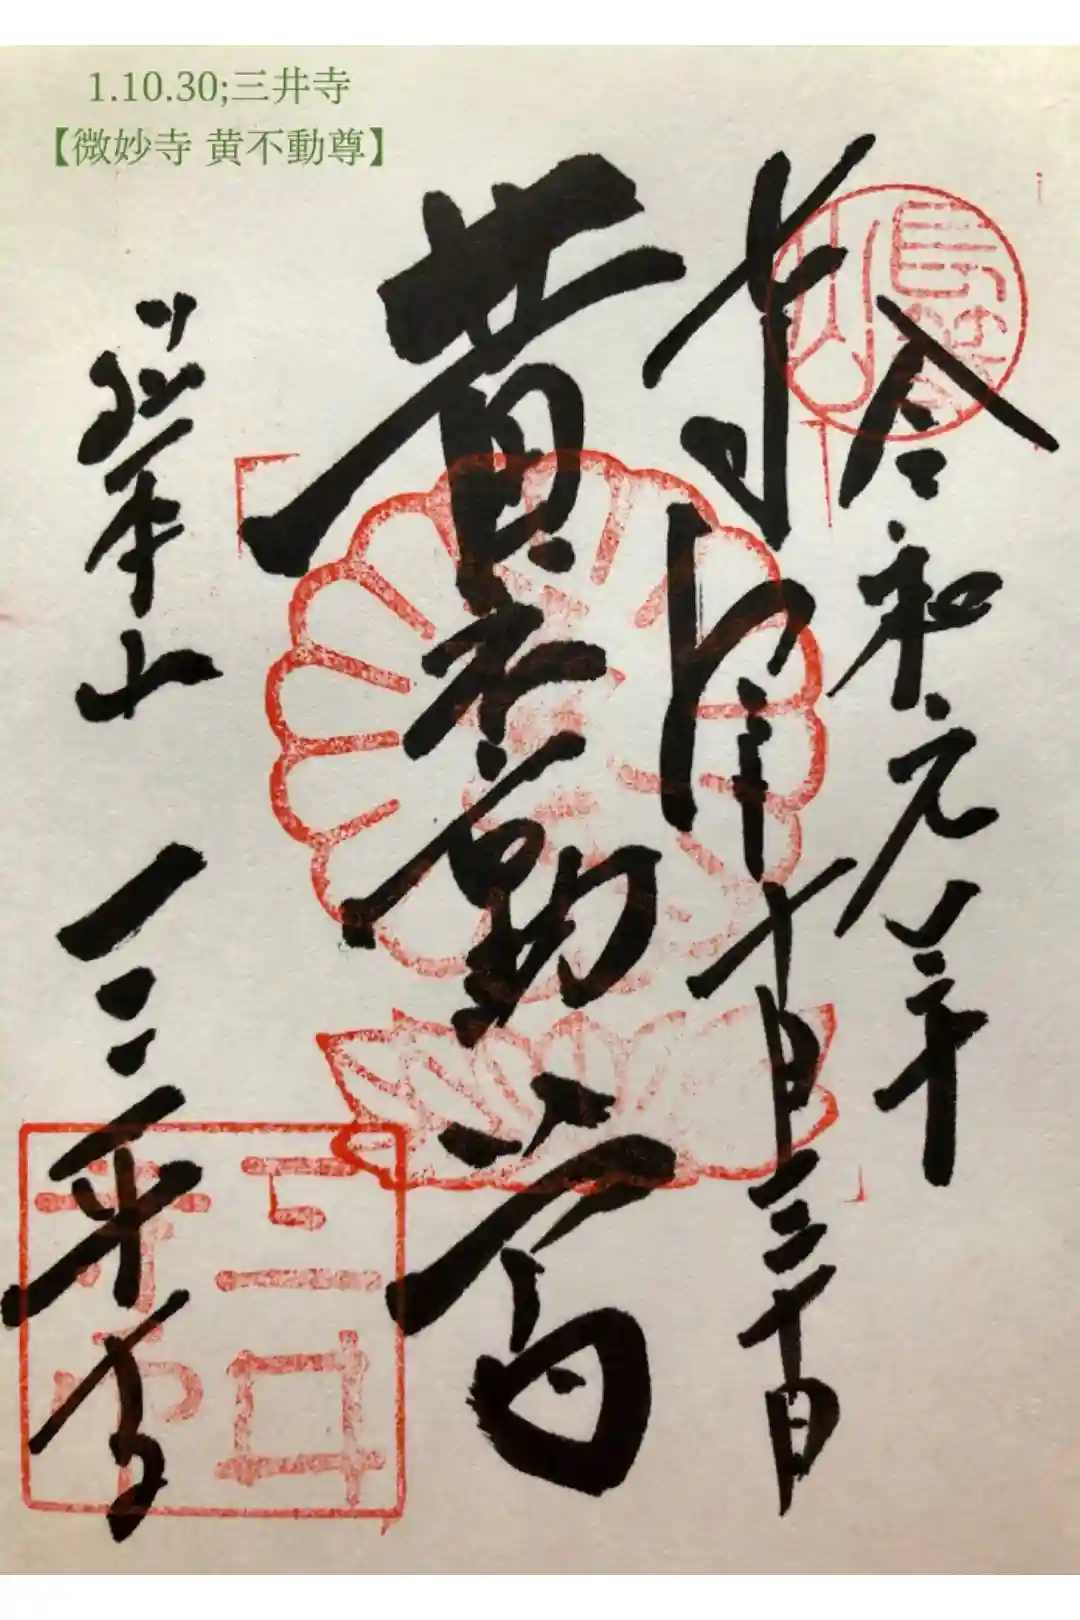 1.10.30;三井寺
【微妙寺 黄不動尊】
令和元年
奉拝 十月三十日
黄不動尊
三井寺
長等山
三井
寺印